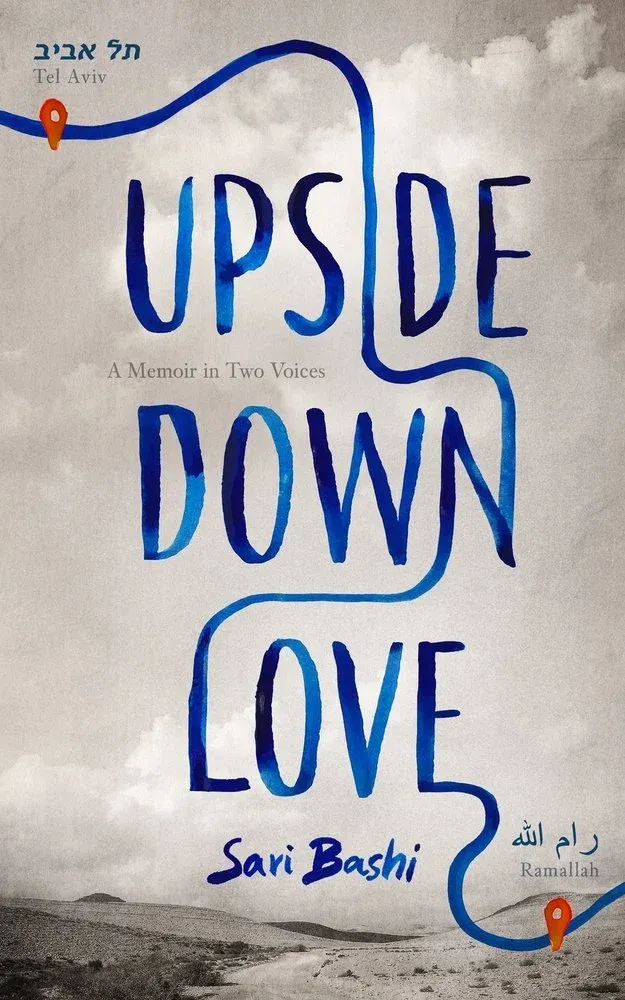 תל אביב
Tel Aviv
UPSIDE
A Memoir in Two Voices
DOWN
LOVE
Sari Bashi
رام الله
Ramallah